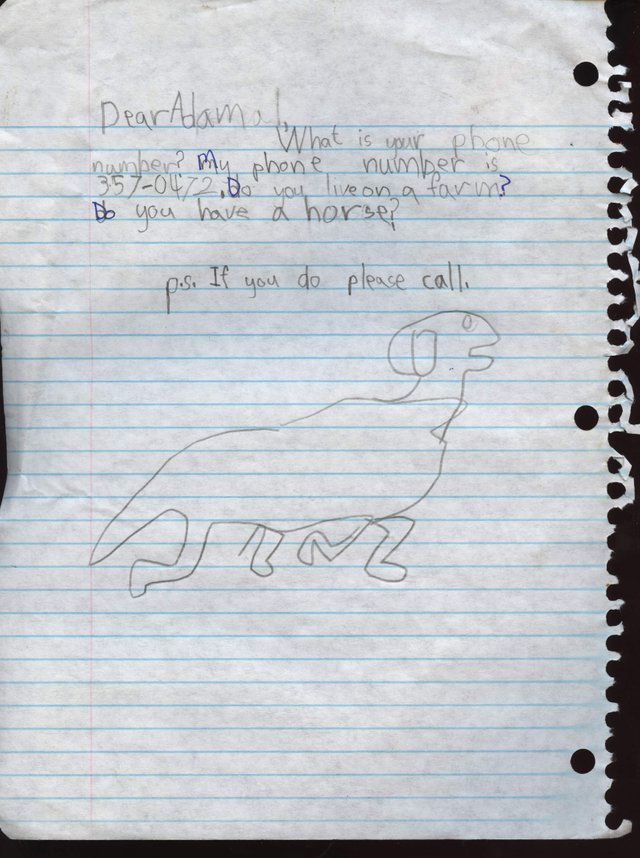 Dear Adam,
What is your phone
number? My phone number is
357-0472. Do you live on a farm?
Do you have a horse?
p.s. If you do please call.